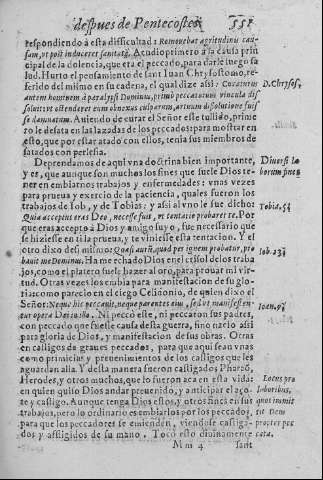 despues de Pentecostes. 551
respondiendo à esta dissicultad: Remouebat ægritudinis cau-
sam, vt posit induceret sanitatē. Acudio primero à la causa prin
cipal de la dolencia, que era el peccado, para darle luego sa
lud. Hurto el pensamiento de sant Iuan Chrysostomo, re-
ferido del mismo en su cadena, el qual dize assi: Curaturus
autem hominem à paralysi Dominus, primò peccatorum vincula dis
soluit vt ostenderet eum
so damnatum. Auiendo de curar el Señor este tullido, prime
ro le desata en las lazadas de los peccados: para mostrar en
esto, que por estar atado con ellos, tenia sus miembros de
satados con perlesia.
Deprendamos de aqui vna doctrina bien importante,
y es, que aunque son muchos los fines que suele Dios te-
ner en embiarnos trabajos y enfermedades: vnas vezes
para prueua y exercicio de la paciencia, quales fueron los
trabajos de Iob, y de Tobias: y assi al vno le fue dicho:
Quia acceptus eras Deo, necesse fuit, vt tentatio probaret te. Por
que eras accepto à Dios y amigo suyo, fue necessario que
se hiziesse en ti la prueua, y te viniesse esta tentacion. Y el
otro dixo del mismo: Quasi aurū, quod per ignem probatur, pro
bauit me Dominus. Ha me echado Dios en el crisol de los traba
jos, como el platero suele hazer al oro, para prouar mi vir-
tud. Otras vezes los embia para manifestacion de su glo-
ria: como parecio en el ciego Celidonio, de quien dixo el
Señor. Neque hic peccauit, neque parentes eius, sed vt manifesten-
tur opera Dei in illo. Ni peccò este, ni peccaron sus padres,
con peccado que fuesse causa desta guerra, sino nacio assi
para gloria de Dios, y manifestacion de sus obras. Otras
en castigos de graues peccados, para que aqui sean vnas
como primicias y preuenimientos de los castigos que les
aguardan alla. Y desta manera fueron castigados Pharaō,
Herodes, y otros muchos, que lo fueron aca en esta vida:
en quien quiso Dios andar preuenido, y anticipar el aço-
te y castigo. Aunque tenga Dios estos, y otros fines en sus
trabajos, pero lo ordinario es embiarlos por los peccados,
para que los peccadores se emienden, viendose castiga-
dos y affligidos de su mano. Tocò esto diuinamente
Mm 4 sant
D. Chrysos.
Diuersi la
borum fines
Tobiæ.
Iob. 23.
Ioan. 9.
Locus pro
laboribus,
quos immit
tit Deus
propter pec
cata.